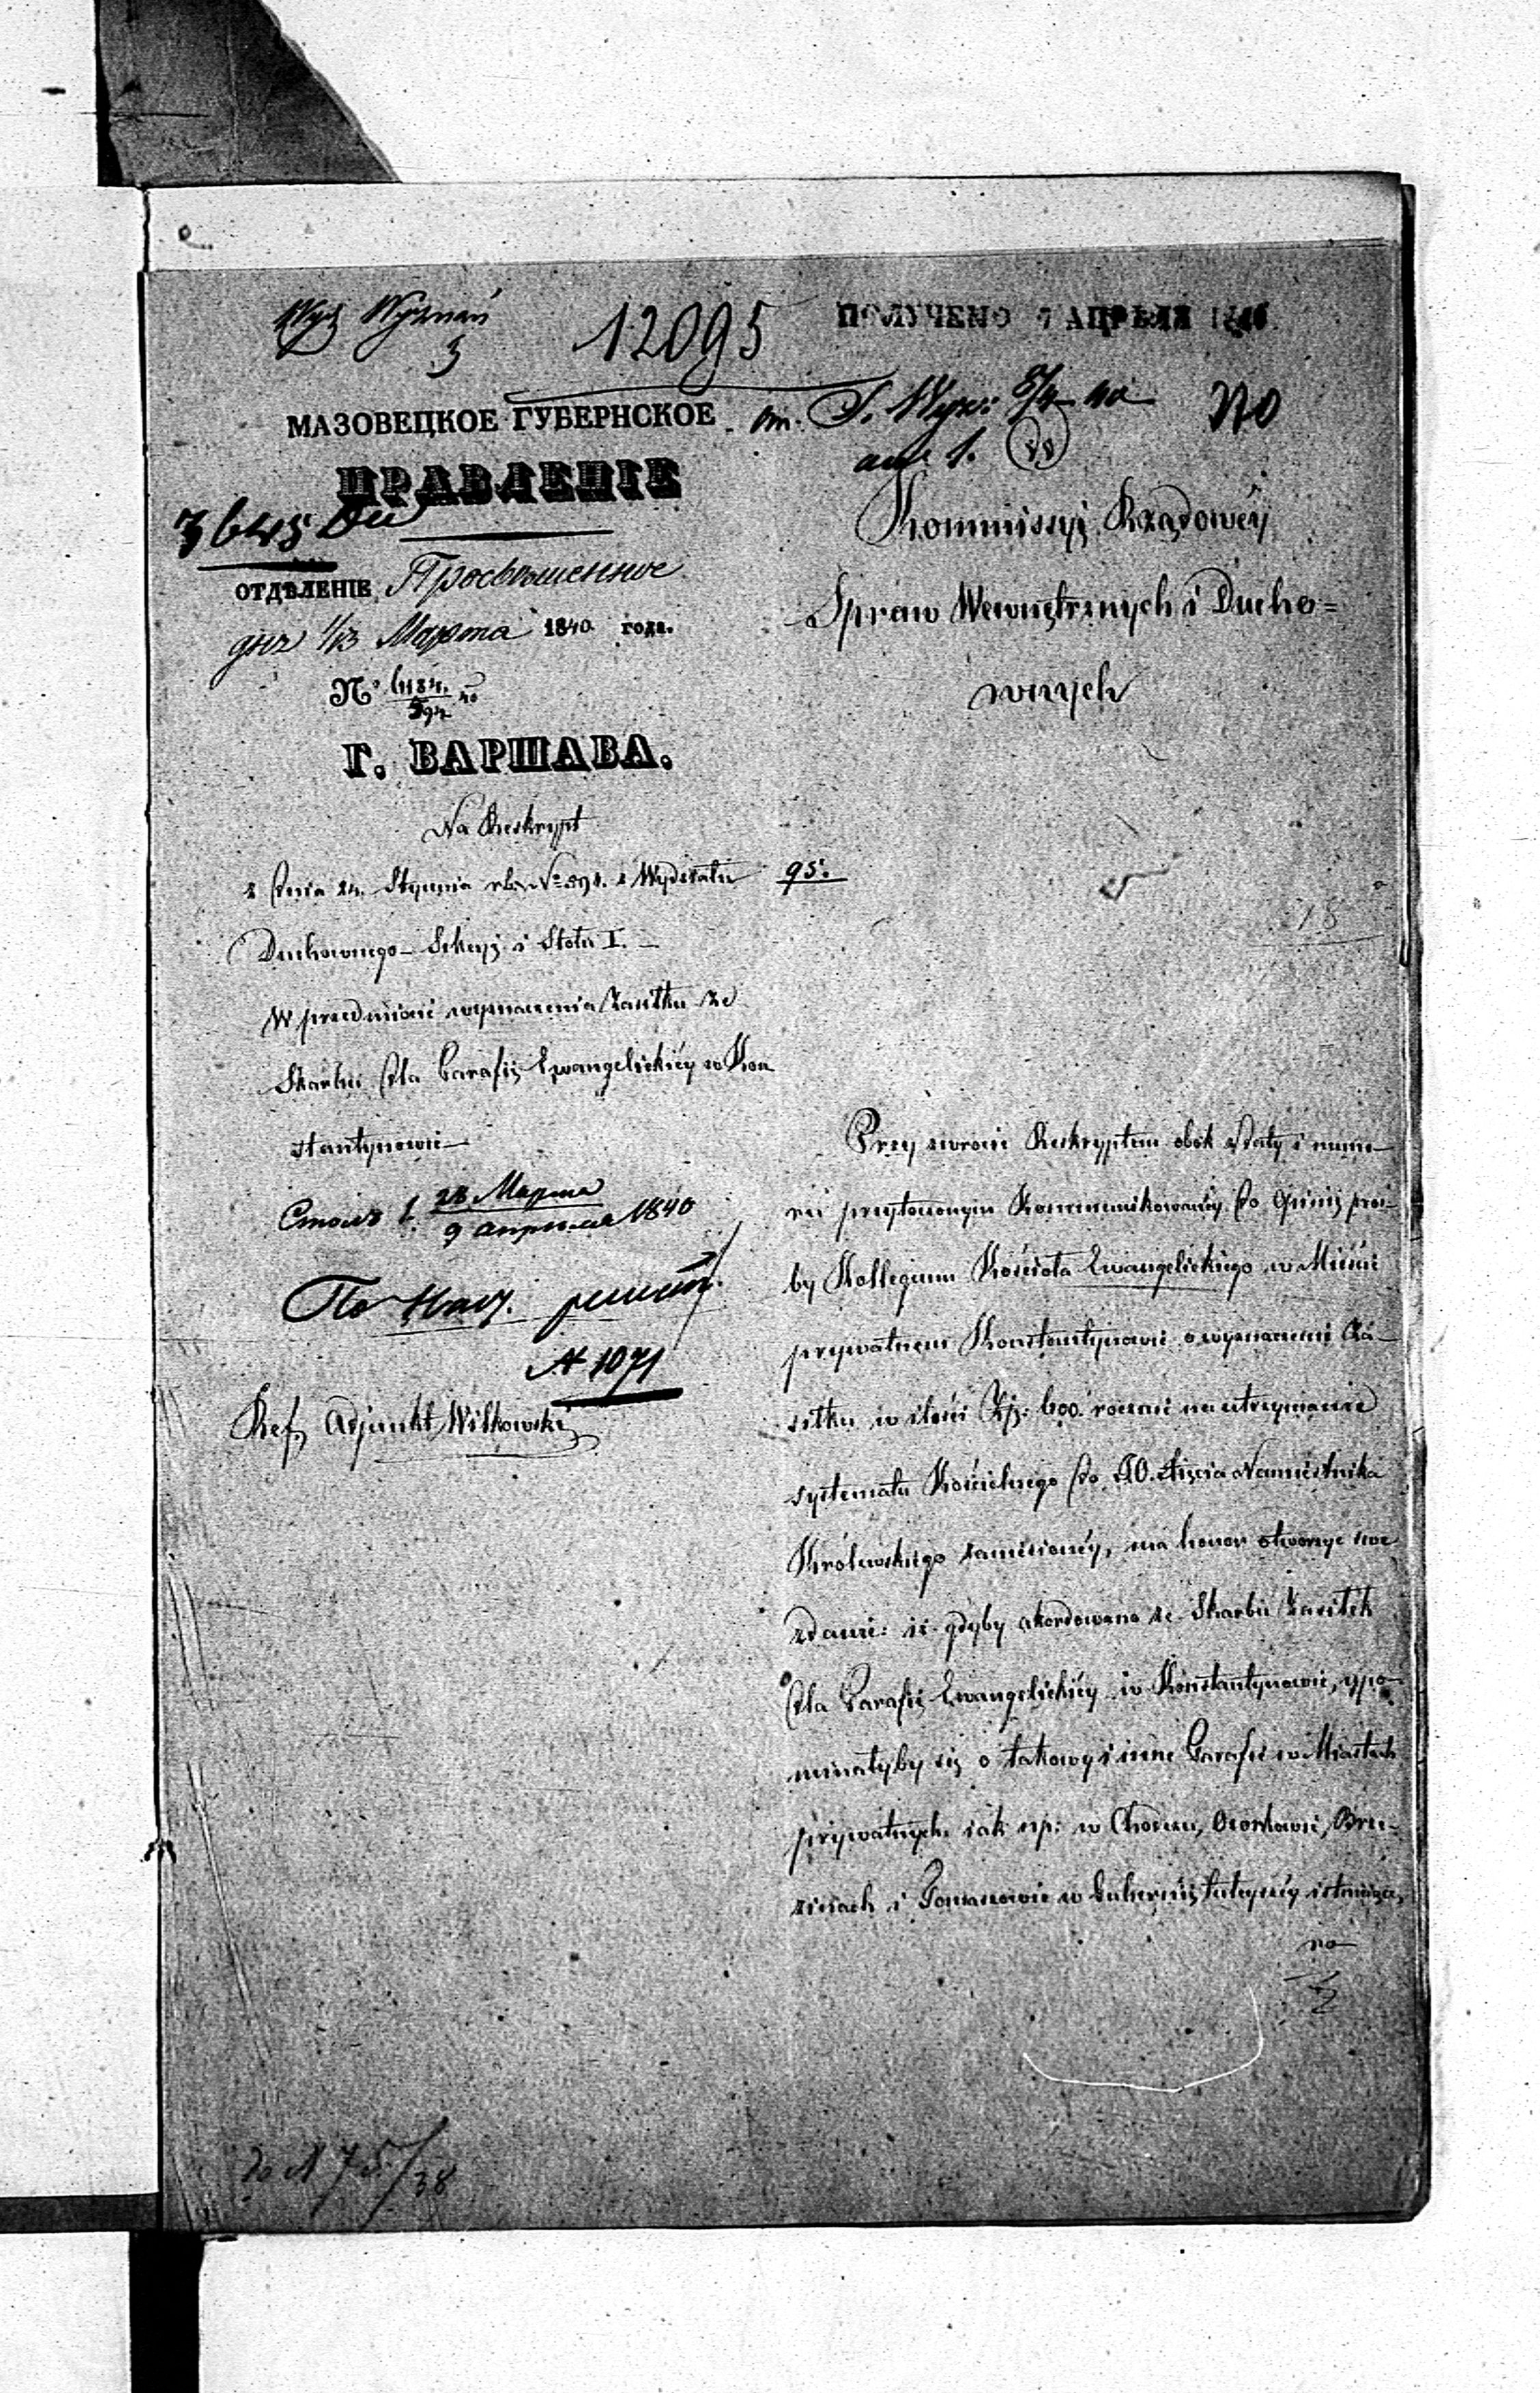 Wyz Wyznań
3
12095
ПОЛУЧЕНО 7 АПРѢЛЯ 1840
МАЗОВЕЦКОЕ ГУБЕРНСКОЕ
ПРАВЛЕНІЕ
3645
ОТДѢЛЕНІЕ Просвѣщенное
дня 1/13 Марта 1840 года.
№
Г. ВАРШАВА.
Na Reskrypt
z dnia 24. Stycznia rb. N
Duchownego Sekcyi i Stołu I.
W przedmiocie wyznaczenia zasiłku ze
Skarbu dla Parafii Ewangelickiéy w Kon
stantynowie
Столъ 1. 28 Марта
9 апрѣля 1840
По
№ 1071
Ref. Adjunkt Witkowski
do N 75/38
Kommissyi Rządowéy
Spraw Wewnętrznych i Ducho=
wnych
95.
18
Przy zwrocie Reskryptem obok daty i nume
ru przytoczonym kommunikowanéy do Opinii proś-
by Kollegium Kościoła Ewangelickiego w Mieście
prywatnem Konstantynowie o wyznaczenie Za-
siłku w ilości Zp. 600. rocznie na utrzymanie
systematu Kościelnego do JO. Xięcia Namiestnika
Królewskiego zaniesionéy, ma honor otworzyć swe
zdanie: iż gdyby akordowano ze Skarbu zasiłek
dla Parafii Ewangelickiéy w Konstantynowie, upo-
minałyby się o takowy i inne Parafie w Miastach
prywatnych jak np: w Chodczu, Ozorkowie, Brze-
zinach i Tomaszowie w Gubernii tutejszéy istniejące,
na